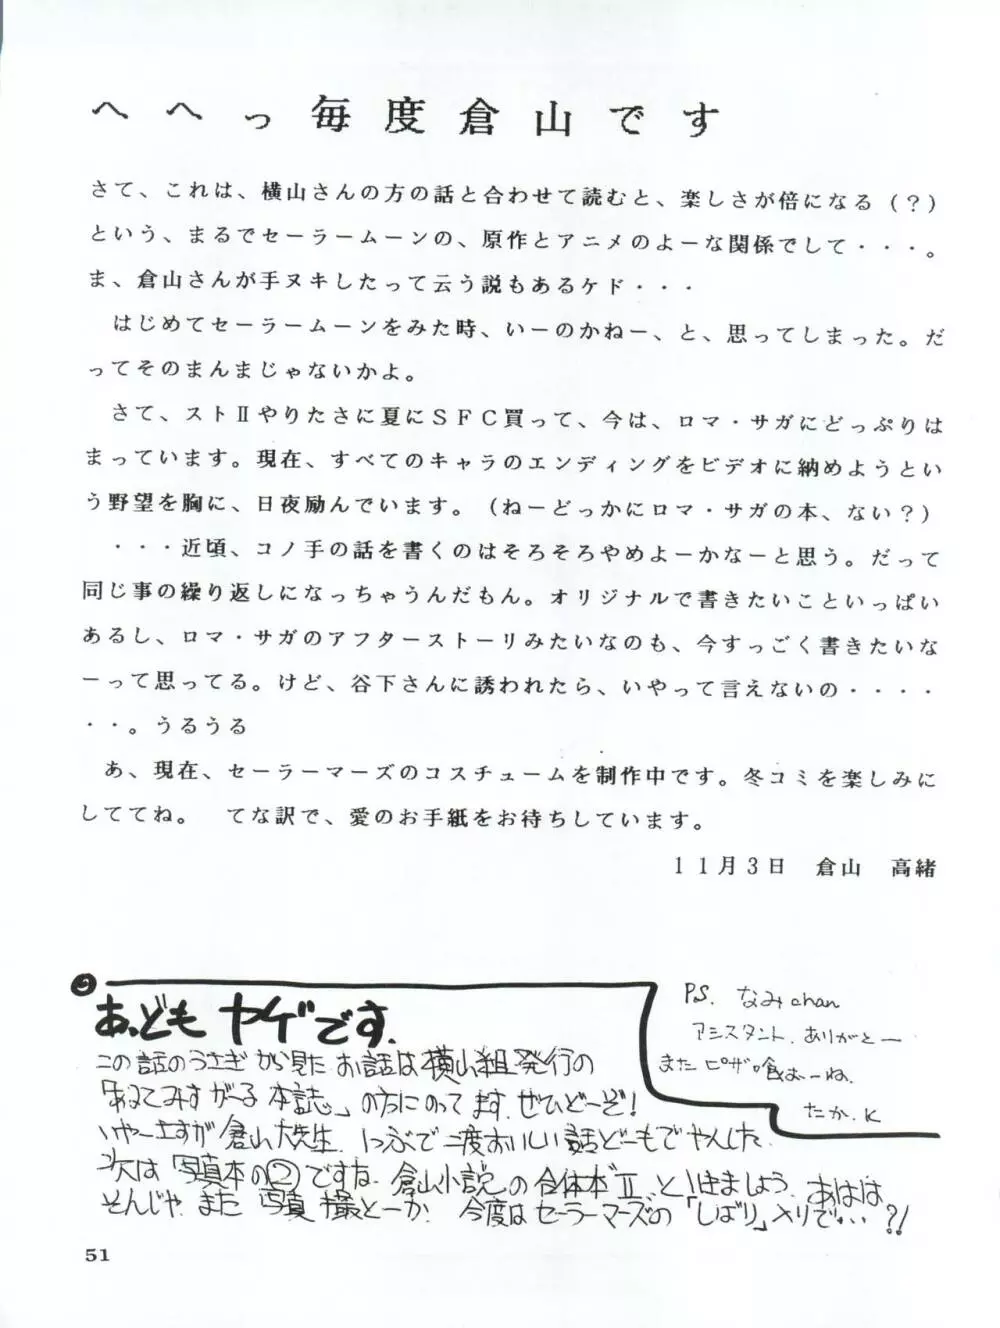 へへっ毎度倉山です
さて、これは、横山さんの方の話と合わせて読むと、楽しさが倍になる（？）
という、まるでセーラームーンの、原作とアニメのよーな関係でして・・・。
ま、倉山さんが手ヌキしたって云う説もあるケド・・・
はじめてセーラームーンをみた時、いーのかねー、と、思ってしまった。だ
ってそのまんまじゃないかよ。
さて、ストⅡやりたさに夏にＳＦＣ買って、今は、ロマ・サガにどっぷりは
まっています。現在、すべてのキャラのエンディングをビデオに納めようとい
う野望を胸に、日夜励んでいます。（ねーどっかにロマ・サガの本、ない？）
・・・近頃、コノ手の話を書くのはそろそろやめよーかなーと思う。だって
同じ事の繰り返しになっちゃうんだもん。オリジナルで書きたいこといっぱい
あるし、ロマ・サガのアフターストーリみたいなのも、今すっごく書きたいな
ーって思ってる。けど、谷下さんに誘われたら、いやって言えないの・・・・
・・。うるうる
あ、現在、セーラーマーズのコスチュームを制作中です。冬コミを楽しみに
しててね。　てな訳で、愛のお手紙をお待ちしています。
１１月３日　倉山　高緒
あ、ども ヤゲです.
この話のうさぎから見たお話は横山組発行の
の方にのってます.ぜひどーぞ!
いやーさすが倉山大先生. 1つぶで二度おいしい話どーもでやんした.
次は「写真本の②」ですね. 倉山小説の合体本Ⅱ、といきましょう. あはは
そんじゃ また 写真 撮とーか. 今度はセーラーマーズの「しばり」入りで…?!
P.S. なみchan
アシスタント.ありがとー
また ピザ喰おーね.
たか.K
51